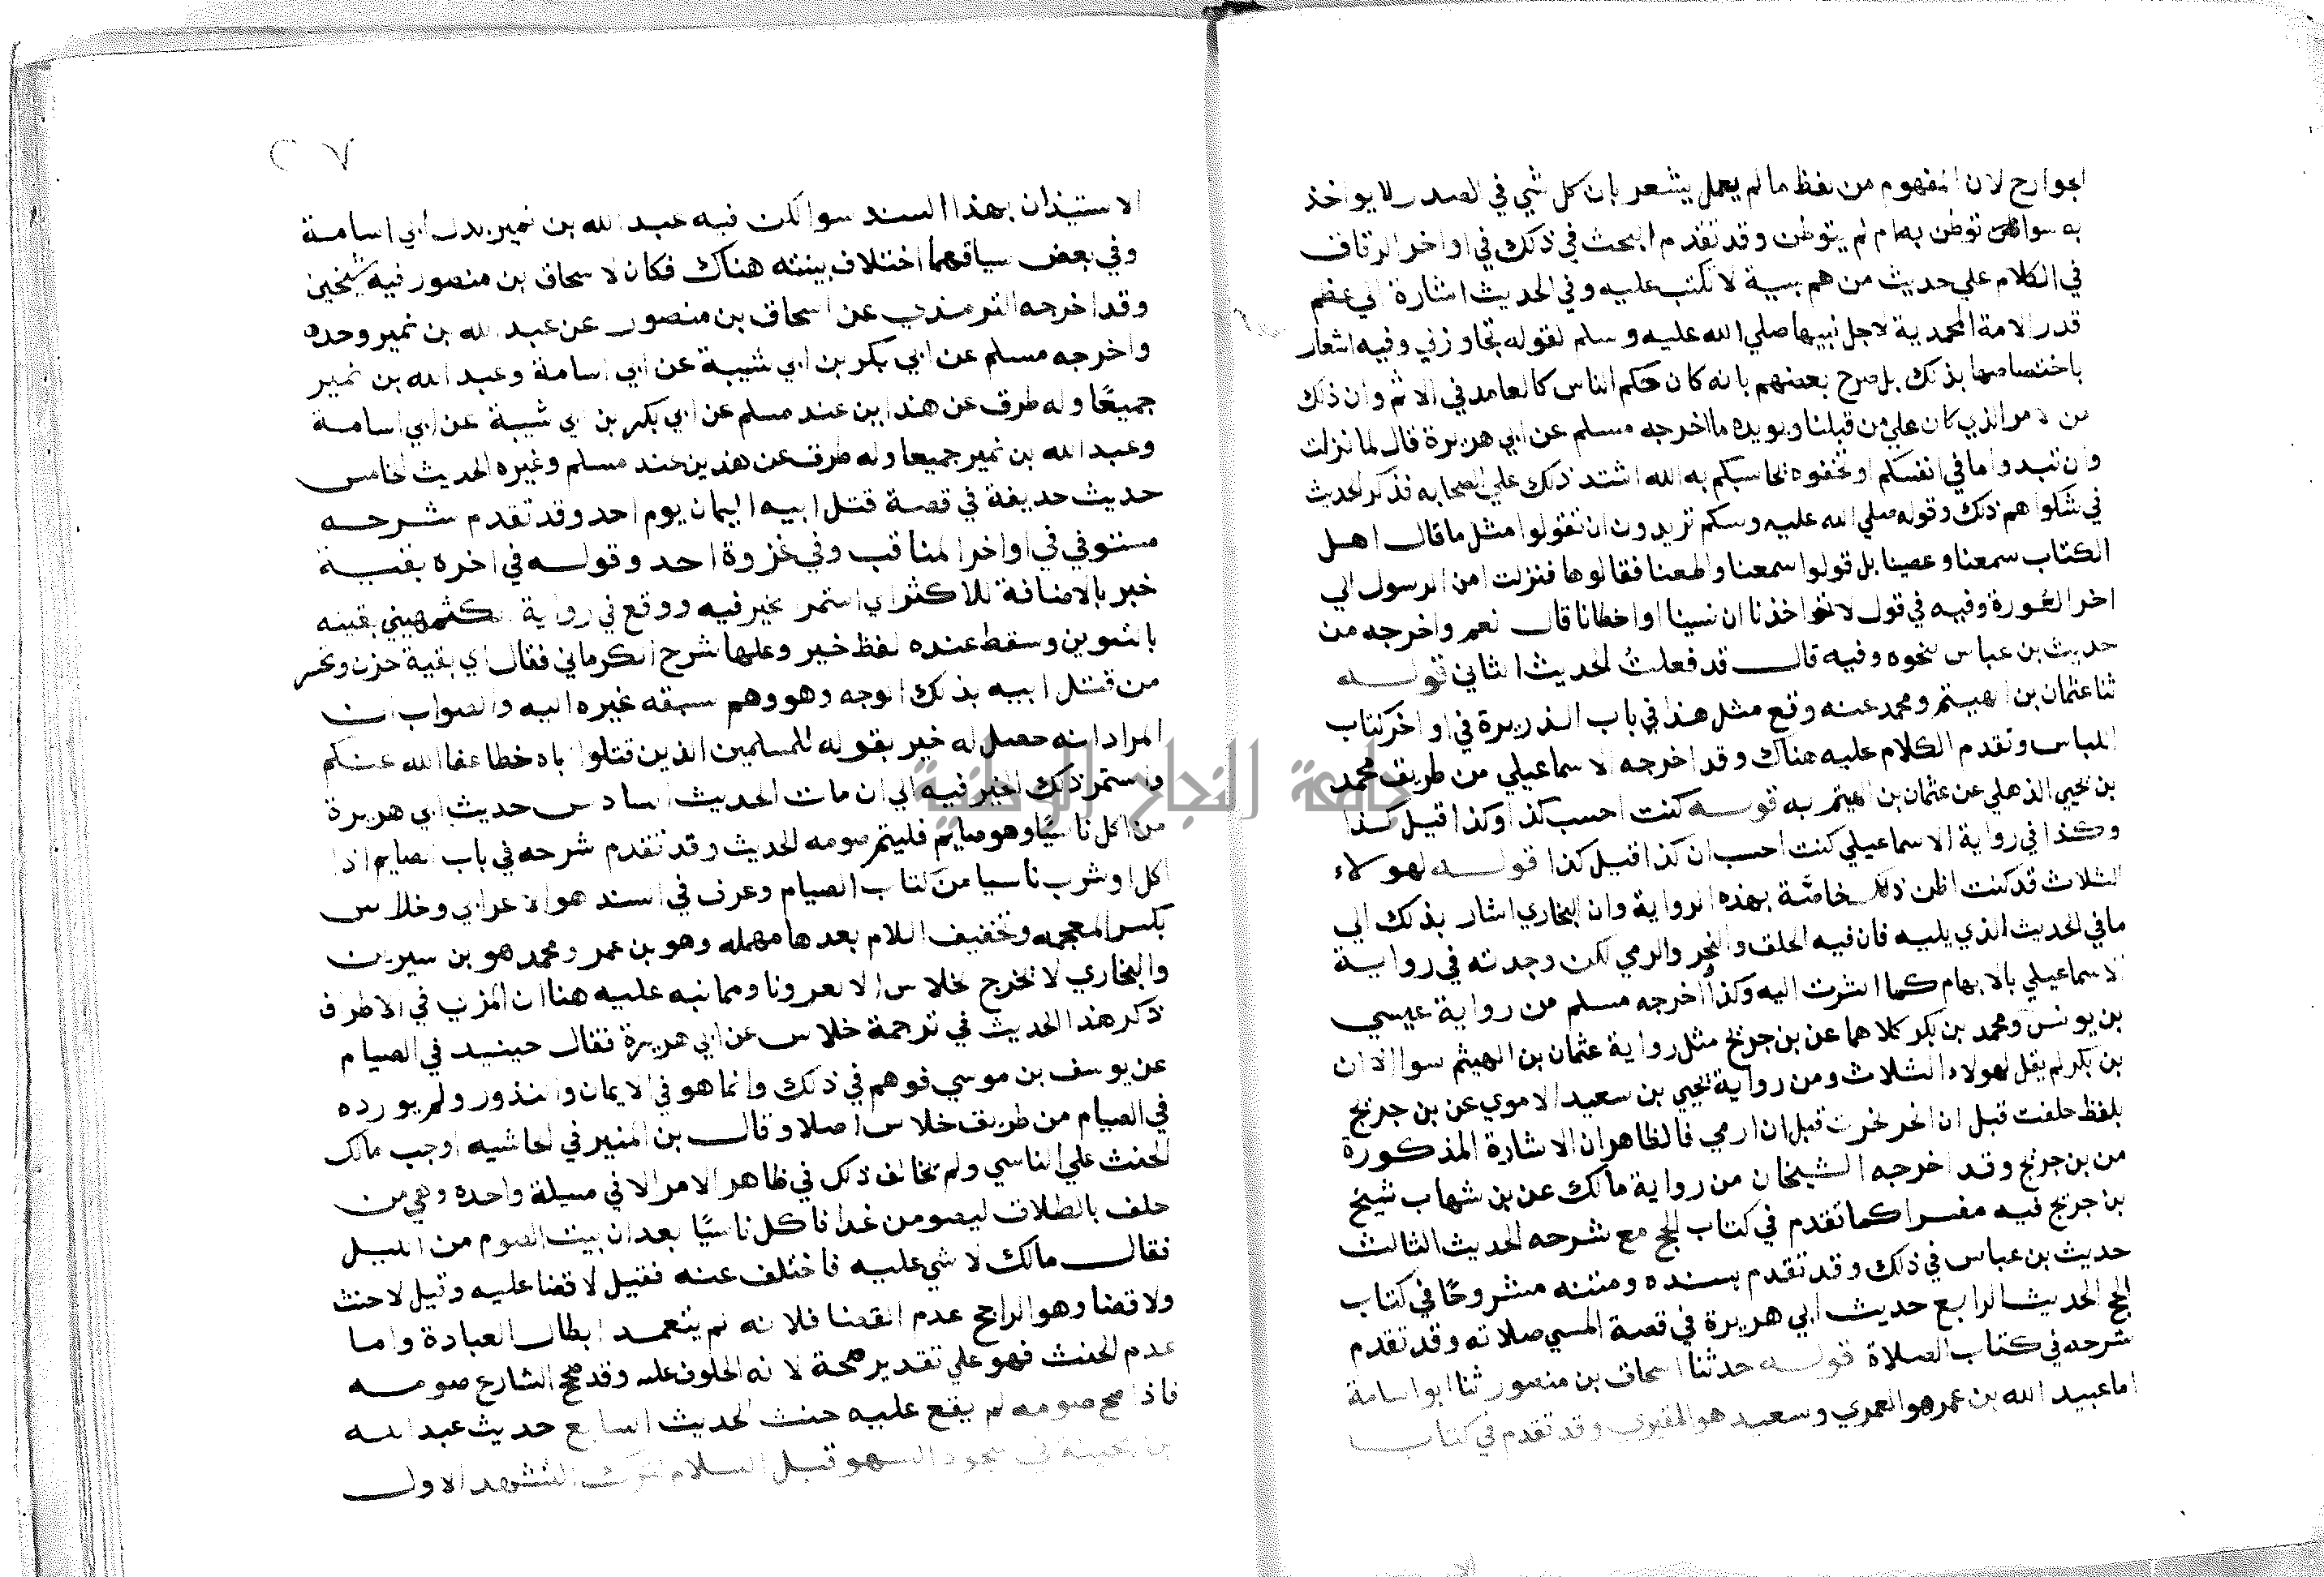 الجوارح لان المفهوم من لفظ ما لم يعمل يشعر بان كل شي في الصدر لا يواخذ
به سوا توطن به ام لم يتوطن وقد تقدم البحث في ذلك في اواخر الرقاق
في الكلام علي حديث من هم بسية لا تكتب عليه وفي الحديث اشارة الي عظم
قدر الامة المحمدية لاجل نبيها صلي الله عليه وسلم لقوله تجاوز لي وفيه اشعار
باختصاصها بذلك بل صرح بعضهم بانه كان حكم الناس كالعامد في الاثم وان ذلك
من الامر الذي كان علي من قبلنا ويويده ما اخرجه مسلم عن ابي هريرة قال لما نزلت
وان تبدوا ما في انفسكم او تخفوه يحاسبكم به الله اشتد ذلك علي الصحابه فذكر الحديث
في شكواهم ذلك وقوله صلي الله عليه وسلم تريدون ان تقولوا مثل ما قال اهل
الكتاب سمعنا وعصينا بل قولوا سمعنا واطعنا فقالوها فنزلت امن الرسول الي
اخر السورة وفيه في قول لا تواخذنا ان نسينا او اخطانا قال نعم واخرجه من
حديث بن عباس بنحوه وفيه قال قد فعلت الحديث الثاني قوله
ثنا عثمان بن الهيثم ومحمد عنه وقع مثل هذا في باب الذريرة في اواخر كتاب
اللباس وتقدم الكلام عليه هناك وقد اخرجه الاسماعيلي من طريق محمد
بن يحيي الذهلي عن عثمان بن الهيثم به قوله كنت احسب كذا وكذا قبل كذا
وكذا في رواية الاسماعيلي كنت احسب ان كذا قبل كذا قوله لهولاء
الثلاث قد كنت اظن ذلك خاصة بهذه الرواية وان البخاري اشار بذلك الي
ما في الحديث الذي يليه فان فيه الحلق والنحر والرمي لكن وجدته في رواية
الاسماعيلي بالابهام كما اشرت اليه وكذا اخرجه مسلم من رواية عيسي
بن يونس ومحمد بن بكر كلاهما عن بن جريج مثل رواية عثمان بن الهيثم سوا الا ان
بن بكر لم يقل لهولاء الثلاث ومن رواية يحيي بن سعيد الاموي عن بن جريج
بلفظ حلقت قبل ان انحر نحرت قبل ان ارمي فالظاهر ان الاشارة المذكورة
من بن جريج وقد اخرجه الشيخان من رواية مالك عن بن شهاب شيخ
بن جريج فيه مفسرا كما تقدم في كتاب الحج مع شرحه الحديث الثالث
حديث بن عباس في ذلك وقد تقدم بسنده ومتنه مشروحا في كتاب
الحج الحديث الرابع حديث ابي هريرة في قصة المسي صلاته وقد تقدم
شرحه في كتاب الصلاة قوله حدثنا اسحاق بن منصور ثنا ابو اسامة
اما عبيد الله بن عمر هو العمري وسعيد هو المقبري وقد تقدم في كتاب
٢٧
الاستيذان بهذا السند سوا لكن فيه عبد الله بن نمير بدل ابي اسامة
وفي بعض سياقهما اختلاف بينته هناك فكان لاسحاق بن منصور فيه شيخين
وقد اخرجه الترمذي عن اسحاق بن منصور عن عبد الله بن نمير وحده
واخرجه مسلم عن ابي بكر بن ابي شيبة عن ابي اسامة وعبد الله بن نمير
جميعًا وله طرق عن هذاين عند مسلم عن ابي بكر بن ابي شيبة عن ابي اسامة
وعبد الله بن نمير جميعا وله طرق عن هذين عند مسلم وغيره الحديث الخامس
حديث حديفة في قصة قتل ابيه اليمان يوم احد وقد تقدم شرحه
مستوفي في اواخر المناقب وفي غزوة احد وقوله في اخره بقية
خير بالاضافة للاكثر اي استمر الخير فيه ووقع في رواية الكشمهيني بقيته
بالتنوين وسقط عنده لفظ خير وعليها شرح الكرماني فقال اي بقية حزن وتحسر
من قتل ابيه بذلك الوجه وهو وهم سبقه غيره اليه والصواب ان
المراد انه حصل له خير بقوله للمسلمين الذين قتلوا اباه خطا عفا الله عنكم
واستمر ذلك الخير فيه الي ان مات الحديث السادس حديث ابي هريرة
من اكل ناسيًا وهو صايم فليتم صومه الحديث وقد تقدم شرحه في باب الصايم اذا
اكل او شرب ناسيا من كتاب الصيام وعوف في السند هو الاعرابي وخلاس
بكسر المعجمه وتخفيف اللام بعدها مهمله وهو بن عمر ومحمد هو بن سيرين
والبخاري لا يخرج لخلاس الا مقرونا ومما نبه عليه هنا ان المزي في الاطراف
ذكر هذا الحديث في ترجمة خلاس عن ابي هريرة فقال حينيد في الصيام
عن يوسف بن موسي فوهم في ذلك وانما هو في الايمان والنذور ولم يورده
في الصيام من طريق خلاس اصلا وقال بن المنير في الحاشيه اوجب مالك
الحنث علي الناسي ولم يخالف ذلك في ظاهر الامر الا في مسيلة واحده وهي من
حلف بالطلاق ليصومن غدا فاكل ناسيًا بعد ان بيت الصوم من الليل
فقال مالك لا شي عليه فاختلف عنه فقيل لا قضا عليه وقيل لا حنث
ولا قضا وهو الراجح عدم القضا فلانه لم يتعمد ابطال العبادة واما
عدم الحنث فهو علي تقدير صحة لانه المحلوف عليه وقد صحح الشارع صومه
فاذا صح صومه لم يقع عليه حنث الحديث السابع حديث عبد الله
بن بحينه في سجود السهو قبل السلام لترك التشهد الاول
جامعة النجاح الوطنية